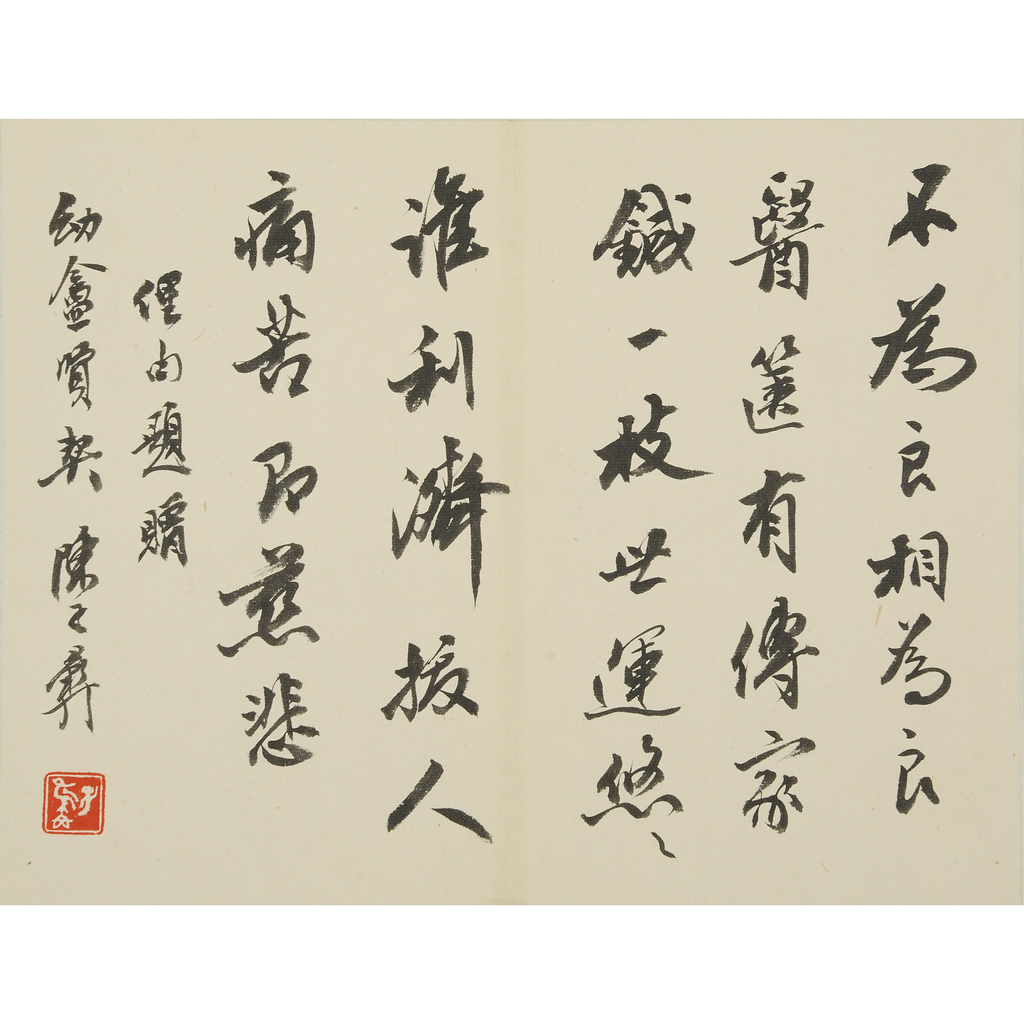 不為良相為良
醫篋有傳家
鍼一枝世運悠〻
誰利濟援人
痛苦即慈悲
俚句題贈
幼盦賢契 陳子彝